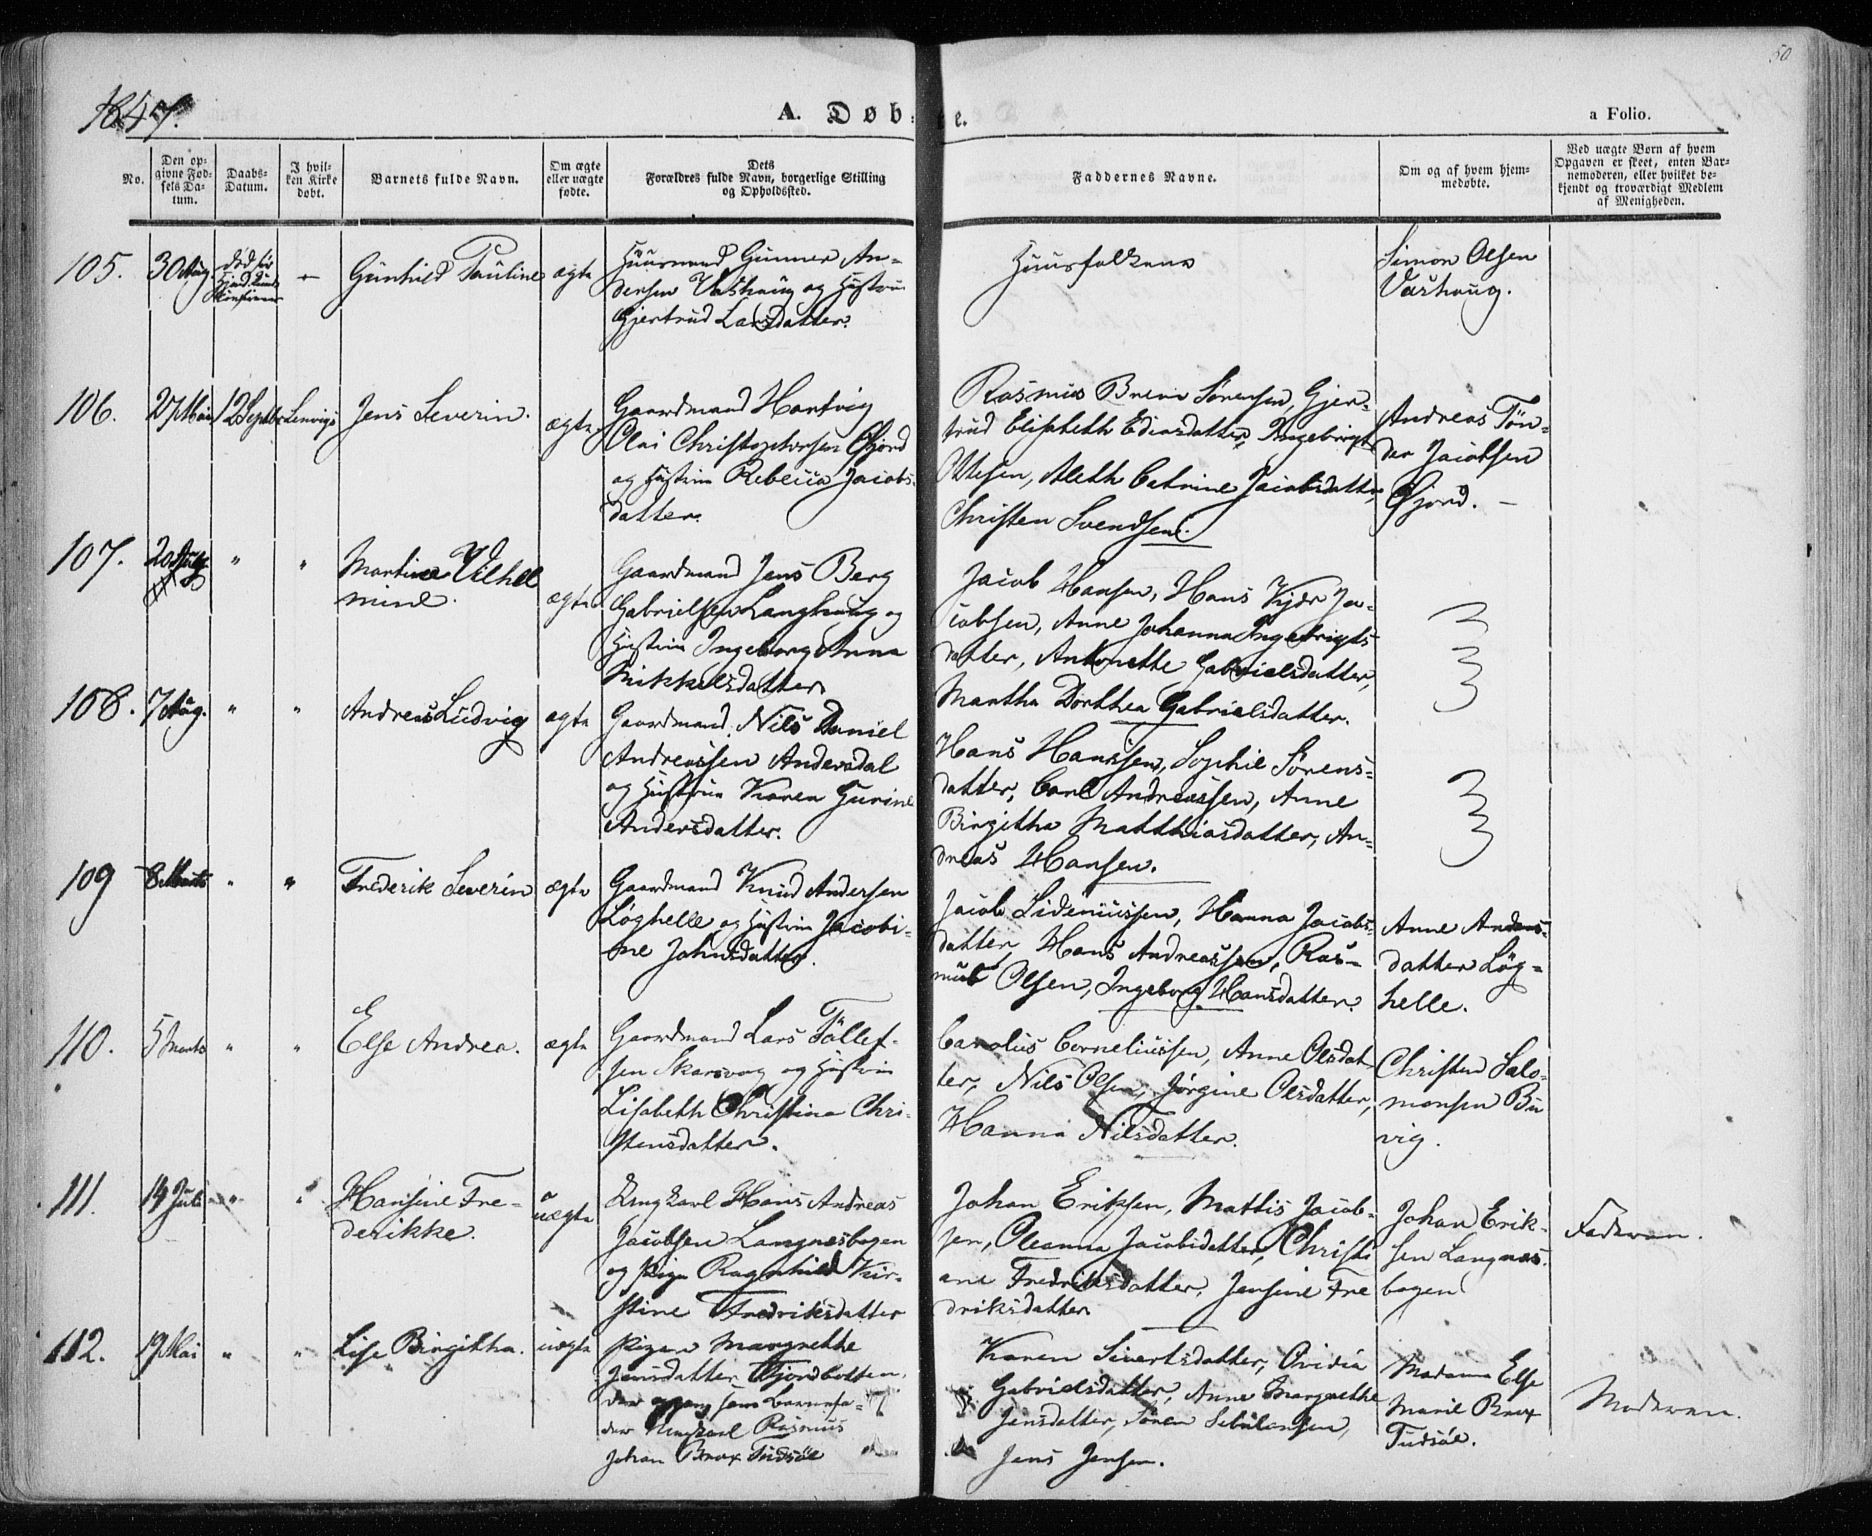 50
1847.
A. Døb: e.
a Folio.
No.
Den op-
givne Fød-
sels Da-
tum.
Daabs-
Datum.
I hvil-
ken Kirke
døbt.
Barnets fulde Navn.
Om ægte
eller uægte
fødte.
Dets
Forældres fulde Navn, borgerlige Stilling
og Opholdssted.
Faddernes Navne.
Om og af hvem hjem-
medøbte.
Ved uægte Børn af hvem
Opgaven er skeet, enten Bar-
nemoderen, eller hvilket be-
kjendt og troværdigt Medlem
af Menigheden.
105.
30 Aug.
død før
—
Gunhild Pauline
ægte
Huusmand Gunner An-
dersen Vashaug og Hustru
Gjertrud Larsdatter.
Huusfolkene
Simon Olsen
Vashaug.
106.
27 Mai
12 Septbr
Lenvigs
Jens Severin.
ægte
Gaardmand Hartvig
Olai Christophersen Øfjord
og Hustru Rebecca Jacobs-
datter.
Rasmus Brein Sørensen, Gjer-
trud Elisabeth Ediasdatter, Ingebrigt
Ottesen, Aleth Catrine Jacobsdatter
Christen Svendsen.
Andreas Tøn-
der Jacobsen
Øfjord. —
107.
20
"
"
Martine Vilhel
mine.
ægte
Gaardmand Jens Berg
Gabrielsen Langhaug og
Hustru Ingeborg Anna
Mikkelsdatter
Jacob Hansen, Hans Kjær Ja-
cobsen, Anne Johanna Ingebrigts
datter, Antonette Gabrielsdatter,
Martha Dorthea Gabrielsdatter.
108.
7 Aug.
"
"
Andreas Ludvig
ægte
Gaardmand Nils Daniel
Andreassen Andersdal
og Hustrue Karen Gurine
Andersdatter.
Hans Hanssen, Sophie Sørens-
datter, Carl Andreassen, Anne
Birgitha Matthiasdatter, An-
dreas Hansen.
109
8 Marts
"
"
Frederik Severin
ægte
Gaardmand Knud Andersen
Løghelle og Hustru Jacobi-
ne Johnsdatter.
Jacob Sideniussen, Hanna Jacobs-
datter, Hans Andreassen, Ras-
mus Olsen, Ingeborg Hansdatter.
Anne Anders-
datter Løg-
helle.
110.
5 Marts
"
"
Else Andrea.
ægte
Gaardmand Lars Tollef-
sen Skarsvog og Hustru
Lisabeth Christina Chri-
stensdatter.
Carolus Corneliussen, Anne Olsdat
ter, Nils Olsen, Jørgine Olsdatter,
Hanna Nilsdatter.
Christen Salo-
monsen Bu
vig.
111.
14 Juli
"
"
Hansine Fre-
derikke.
uægte
Ungkarl Hans Andreas
Jacobsen Langnesbogen
og Pige Ragnhild Kir-
stine Fredriksdatter
Johan Eriksen, Mathis Jacob-
sen, Oleanna Jacobsdatter, Christi
ane Fredriksdatter, Jensine Fre
driksdatter
Johan Erik-
sen Langnes-
bogen
Faderen.
112.
19 Mai
"
"
Lise Birgitha.
uægte
Pigen Margrethe
Jensdatter Fjordbotten,
der opgav som Barnefa-
der Ungkarl Rasmus
Johan Brox Tudsøe
Karen Sivertsdatter, Ovidia
Gabrielsdatter, Anne Margrethe
Jensdatter, Søren Sebulonsen,
Jens Jensen.
Madame Else
Marie Brox
Tudsøe.
Moderen.